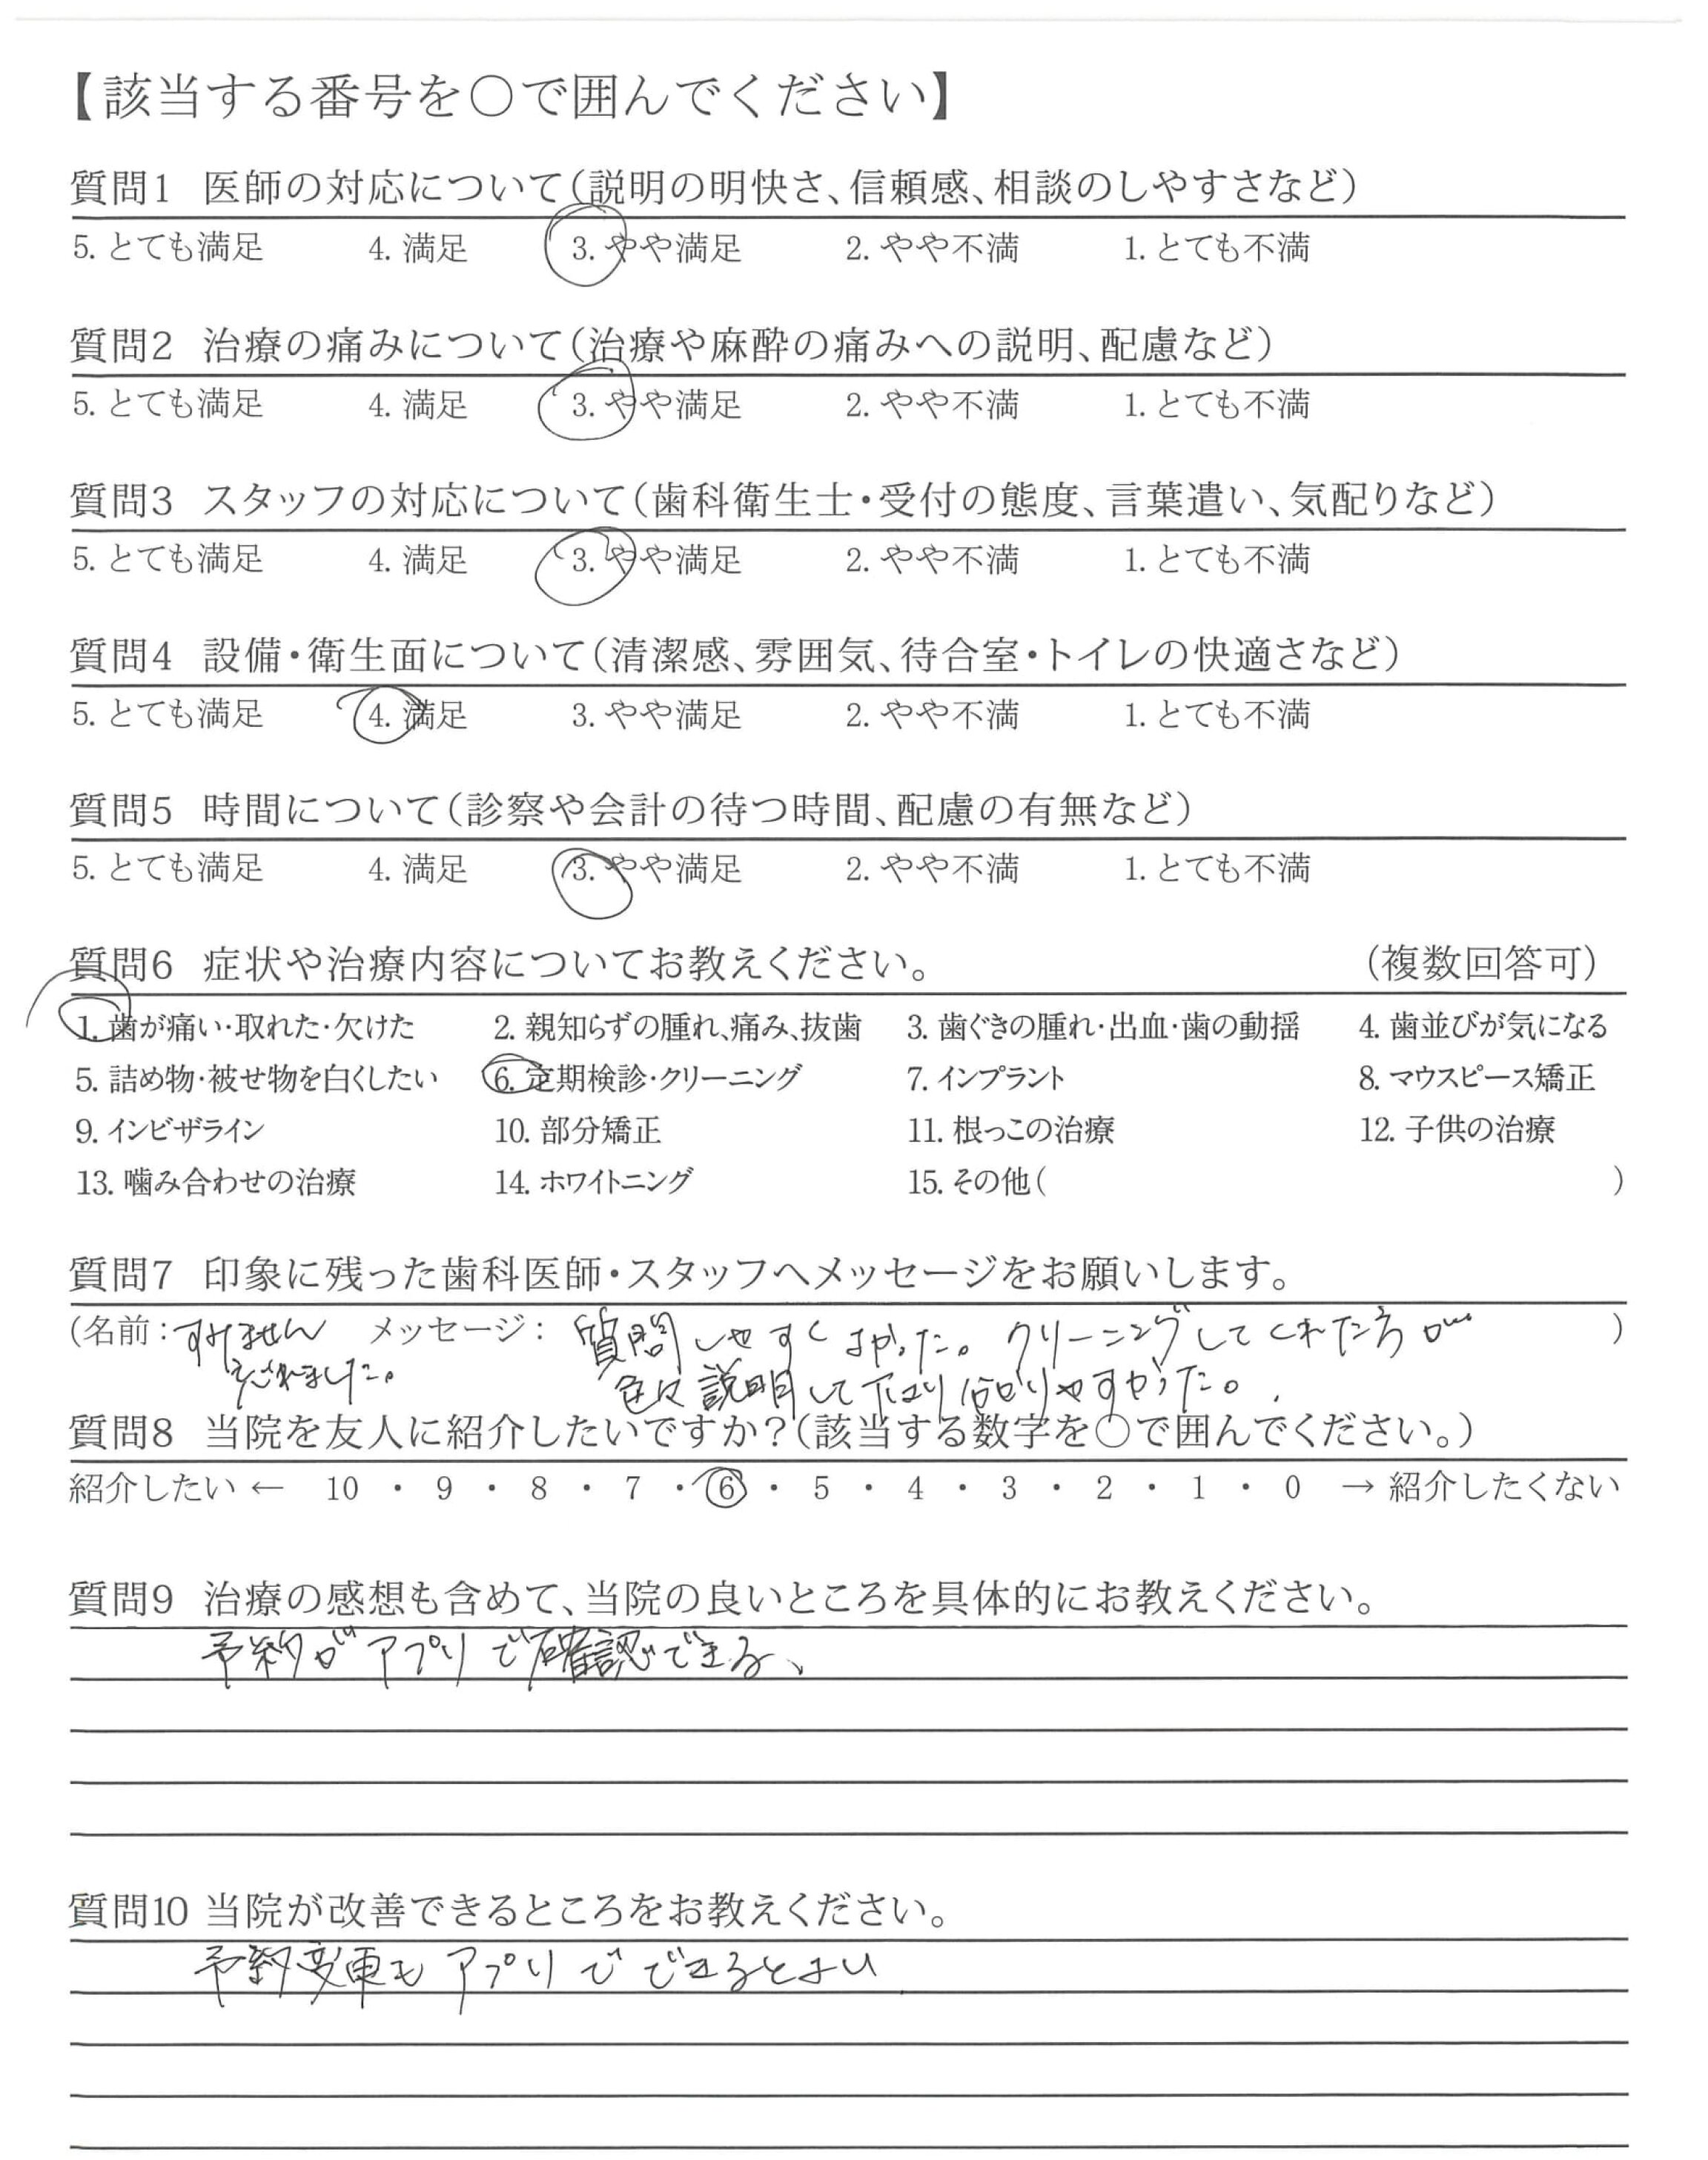 【該当する番号を○で囲んでください】
質問1 医師の対応について(説明の明快さ、信頼感、相談のしやすさなど)
5. とても満足 4. 満足 3. やや満足 2. やや不満 1. とても不満
質問2 治療の痛みについて(治療や麻酔の痛みへの説明、配慮など)
5. とても満足 4. 満足 3. やや満足 2. やや不満 1. とても不満
質問3 スタッフの対応について(歯科衛生士・受付の態度、言葉遣い、気配りなど)
5. とても満足 4. 満足 3. やや満足 2. やや不満 1. とても不満
質問4 設備・衛生面について(清潔感、雰囲気、待合室・トイレの快適さなど)
5. とても満足 4. 満足 3. やや満足 2. やや不満 1. とても不満
質問5 時間について(診察や会計の待つ時間、配慮の有無など)
5. とても満足 4. 満足 3. やや満足 2. やや不満 1. とても不満
質問6 症状や治療内容についてお教えください。 (複数回答可)
1. 歯が痛い・取れた・欠けた 2. 親知らずの腫れ、痛み、抜歯 3. 歯ぐきの腫れ・出血・歯の動揺 4. 歯並びが気になる
5. 詰め物・被せ物を白くしたい 6. 定期検診・クリーニング 7. インプラント 8. マウスピース矯正
9. インビザライン 10. 部分矯正 11. 根っこの治療 12. 子供の治療
13. 噛み合わせの治療 14. ホワイトニング 15. その他( )
質問7 印象に残った歯科医師・スタッフへメッセージをお願いします。
(名前:すみません メッセージ: 質問しやすくよかった。クリーニングしてくれた方が )
忘れました。 色々説明して下さり分かりやすかった。
質問8 当院を友人に紹介したいですか?(該当する数字を○で囲んでください。)
紹介したい ← 10 ・ 9 ・ 8 ・ 7 ・ 6 ・ 5 ・ 4 ・ 3 ・ 2 ・ 1 ・ 0 → 紹介したくない
質問9 治療の感想も含めて、当院の良いところを具体的にお教えください。
予約がアプリで確認できる、
質問10 当院が改善できるところをお教えください。
予約変更もアプリでできるとよい